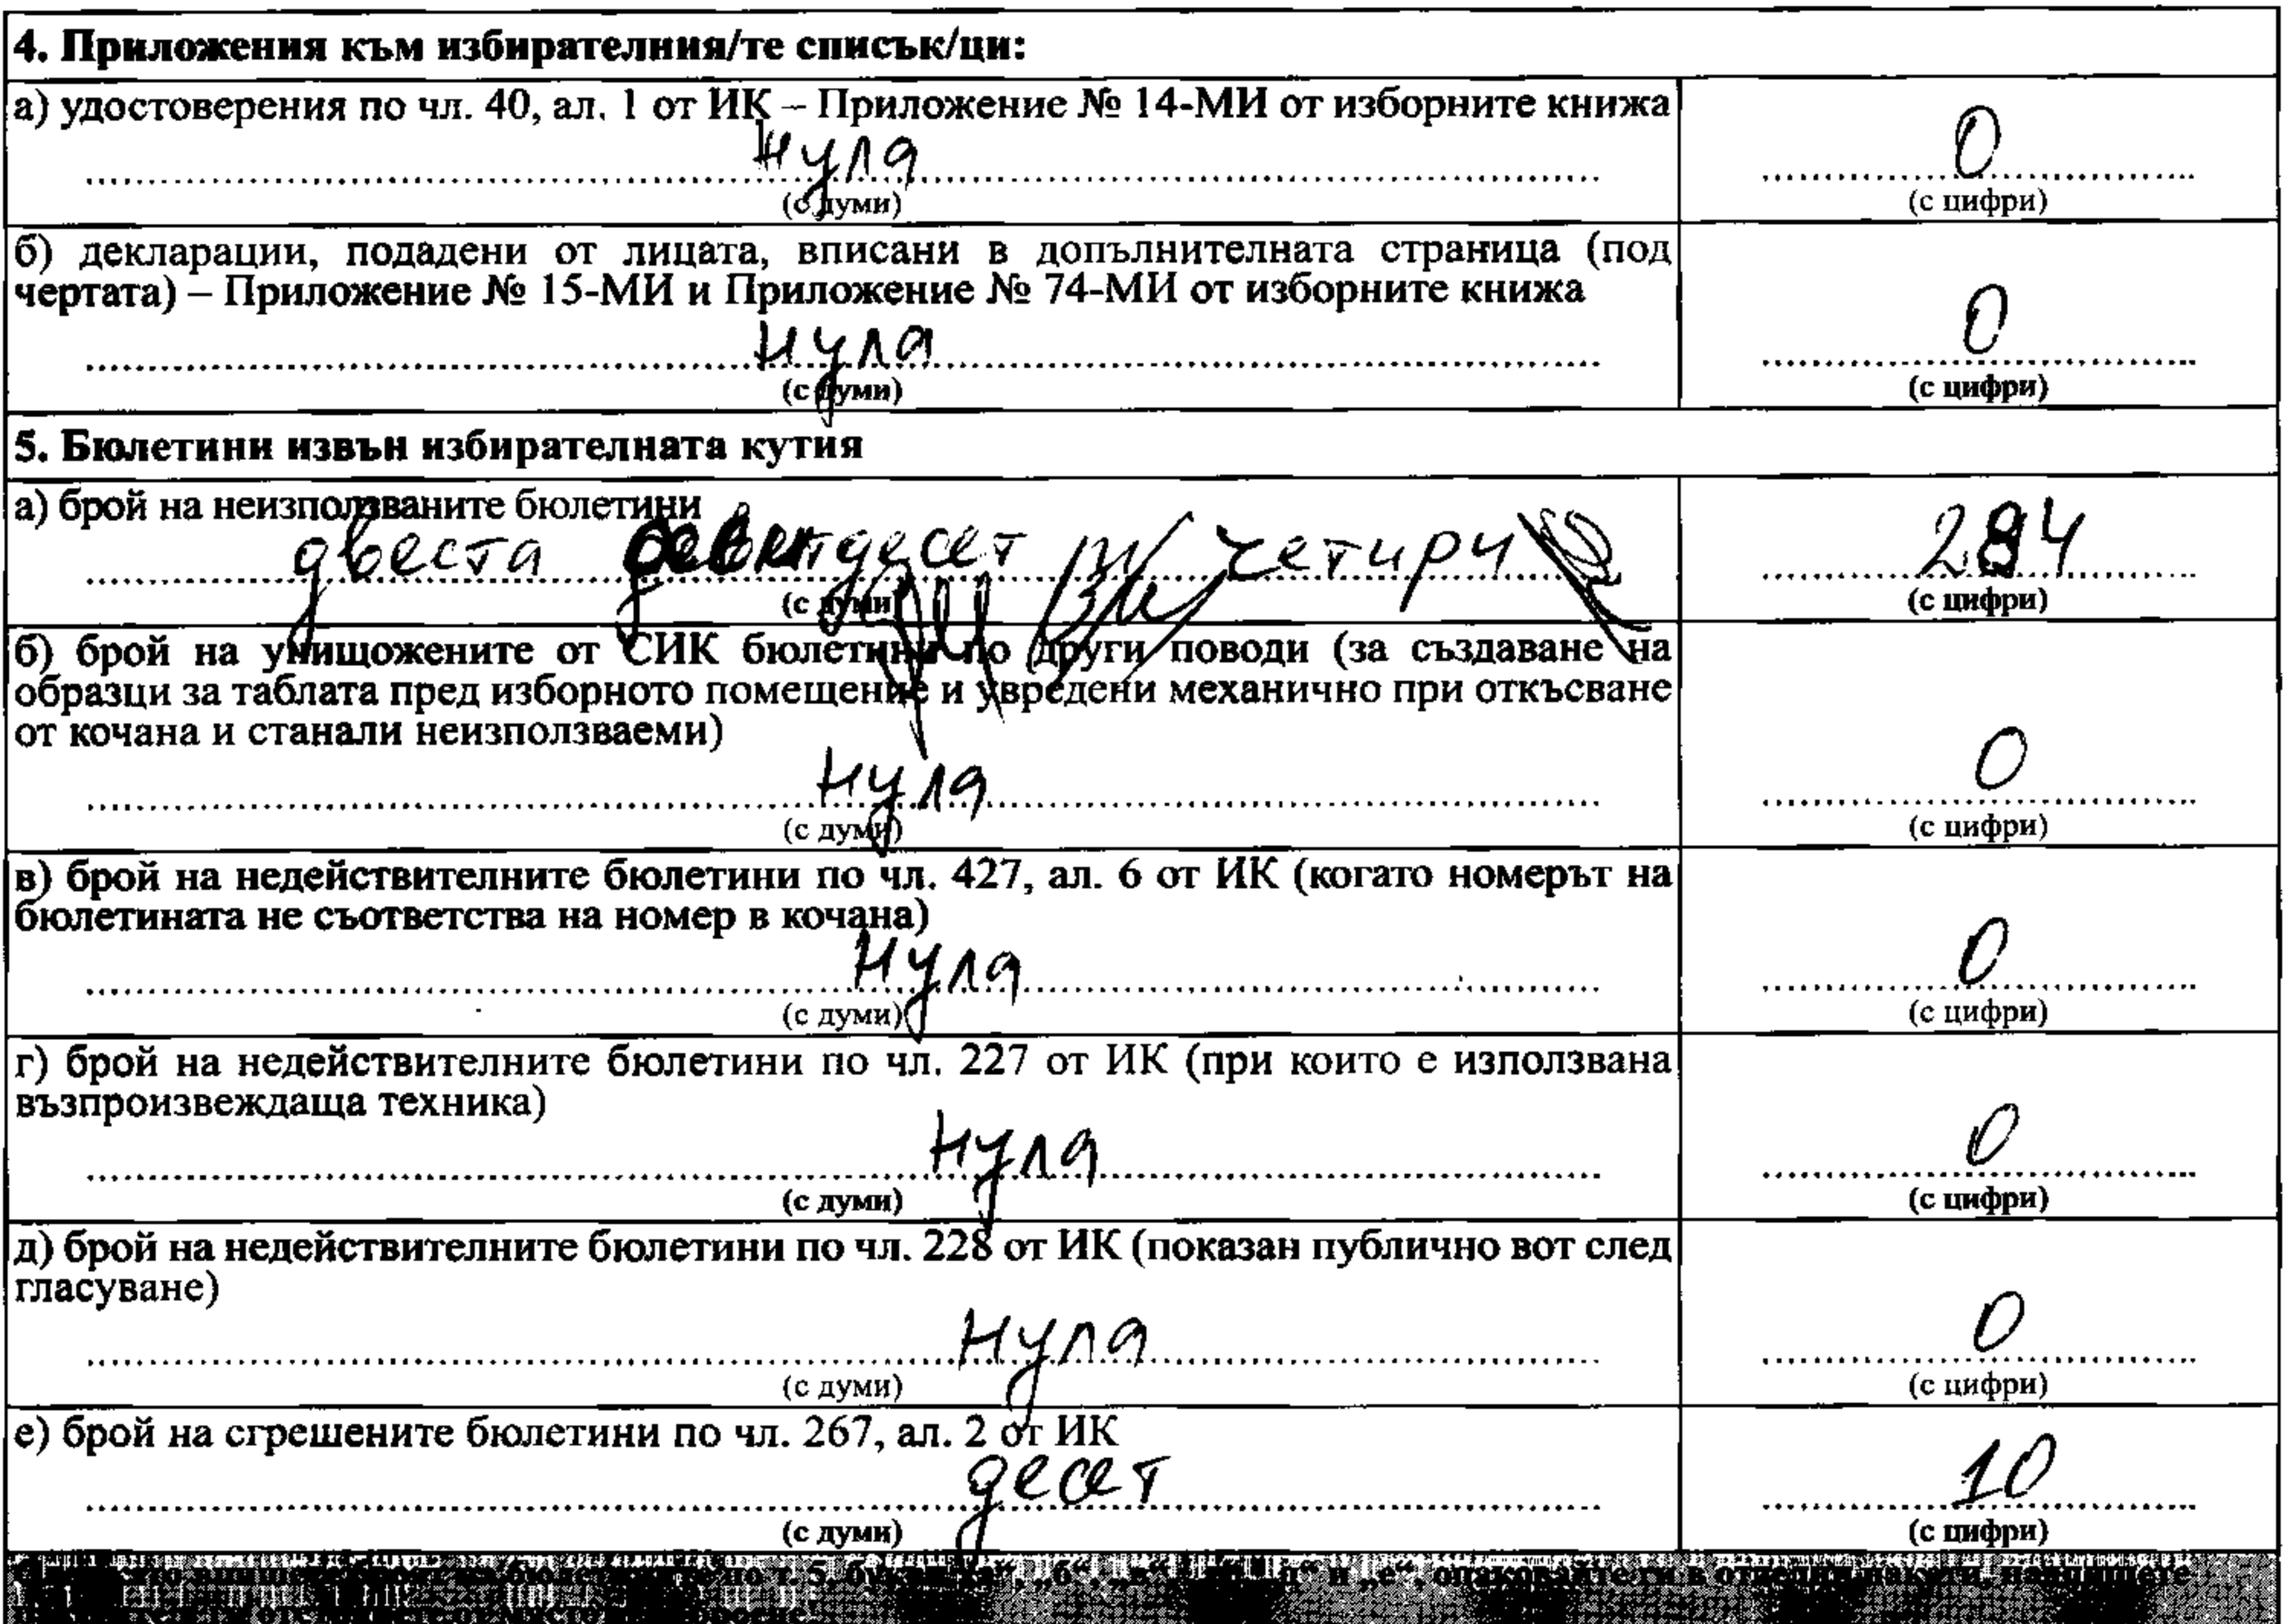 4. Приложения към избирателния/те списък/ци:
а) удостоверения по чл. 40, ал. 1 от ИК – Приложение № 14-МИ от изборните книжа
нула 0
(с думи) (с цифри)
б) декларации, подадени от лицата, вписани в допълнителната страница (под
чертата) – Приложение № 15-МИ и Приложение № 74-МИ от изборните книжа
нула 0
(с думи) (с цифри)
5. Бюлетини извън избирателната кутия
а) брой на неизползваните бюлетини
двеста деветдесет и четири 294
(с думи) (с цифри)
б) брой на унищожените от СИК бюлетини по други поводи (за създаване на
образци за таблата пред изборното помещение и увредени механично при откъсване
от кочана и станали неизползваеми)
нула 0
(с думи) (с цифри)
в) брой на недействителните бюлетини по чл. 427, ал. 6 от ИК (когато номерът на
бюлетината не съответства на номер в кочана)
нула 0
(с думи) (с цифри)
г) брой на недействителните бюлетини по чл. 227 от ИК (при които е използвана
възпроизвеждаща техника)
нула 0
(с думи) (с цифри)
д) брой на недействителните бюлетини по чл. 228 от ИК (показан публично вот след
гласуване)
нула 0
(с думи) (с цифри)
е) брой на сгрешените бюлетини по чл. 267, ал. 2 от ИК
десет 10
(с думи) (с цифри)
опаковайте ги в отделни пакети, надпишете